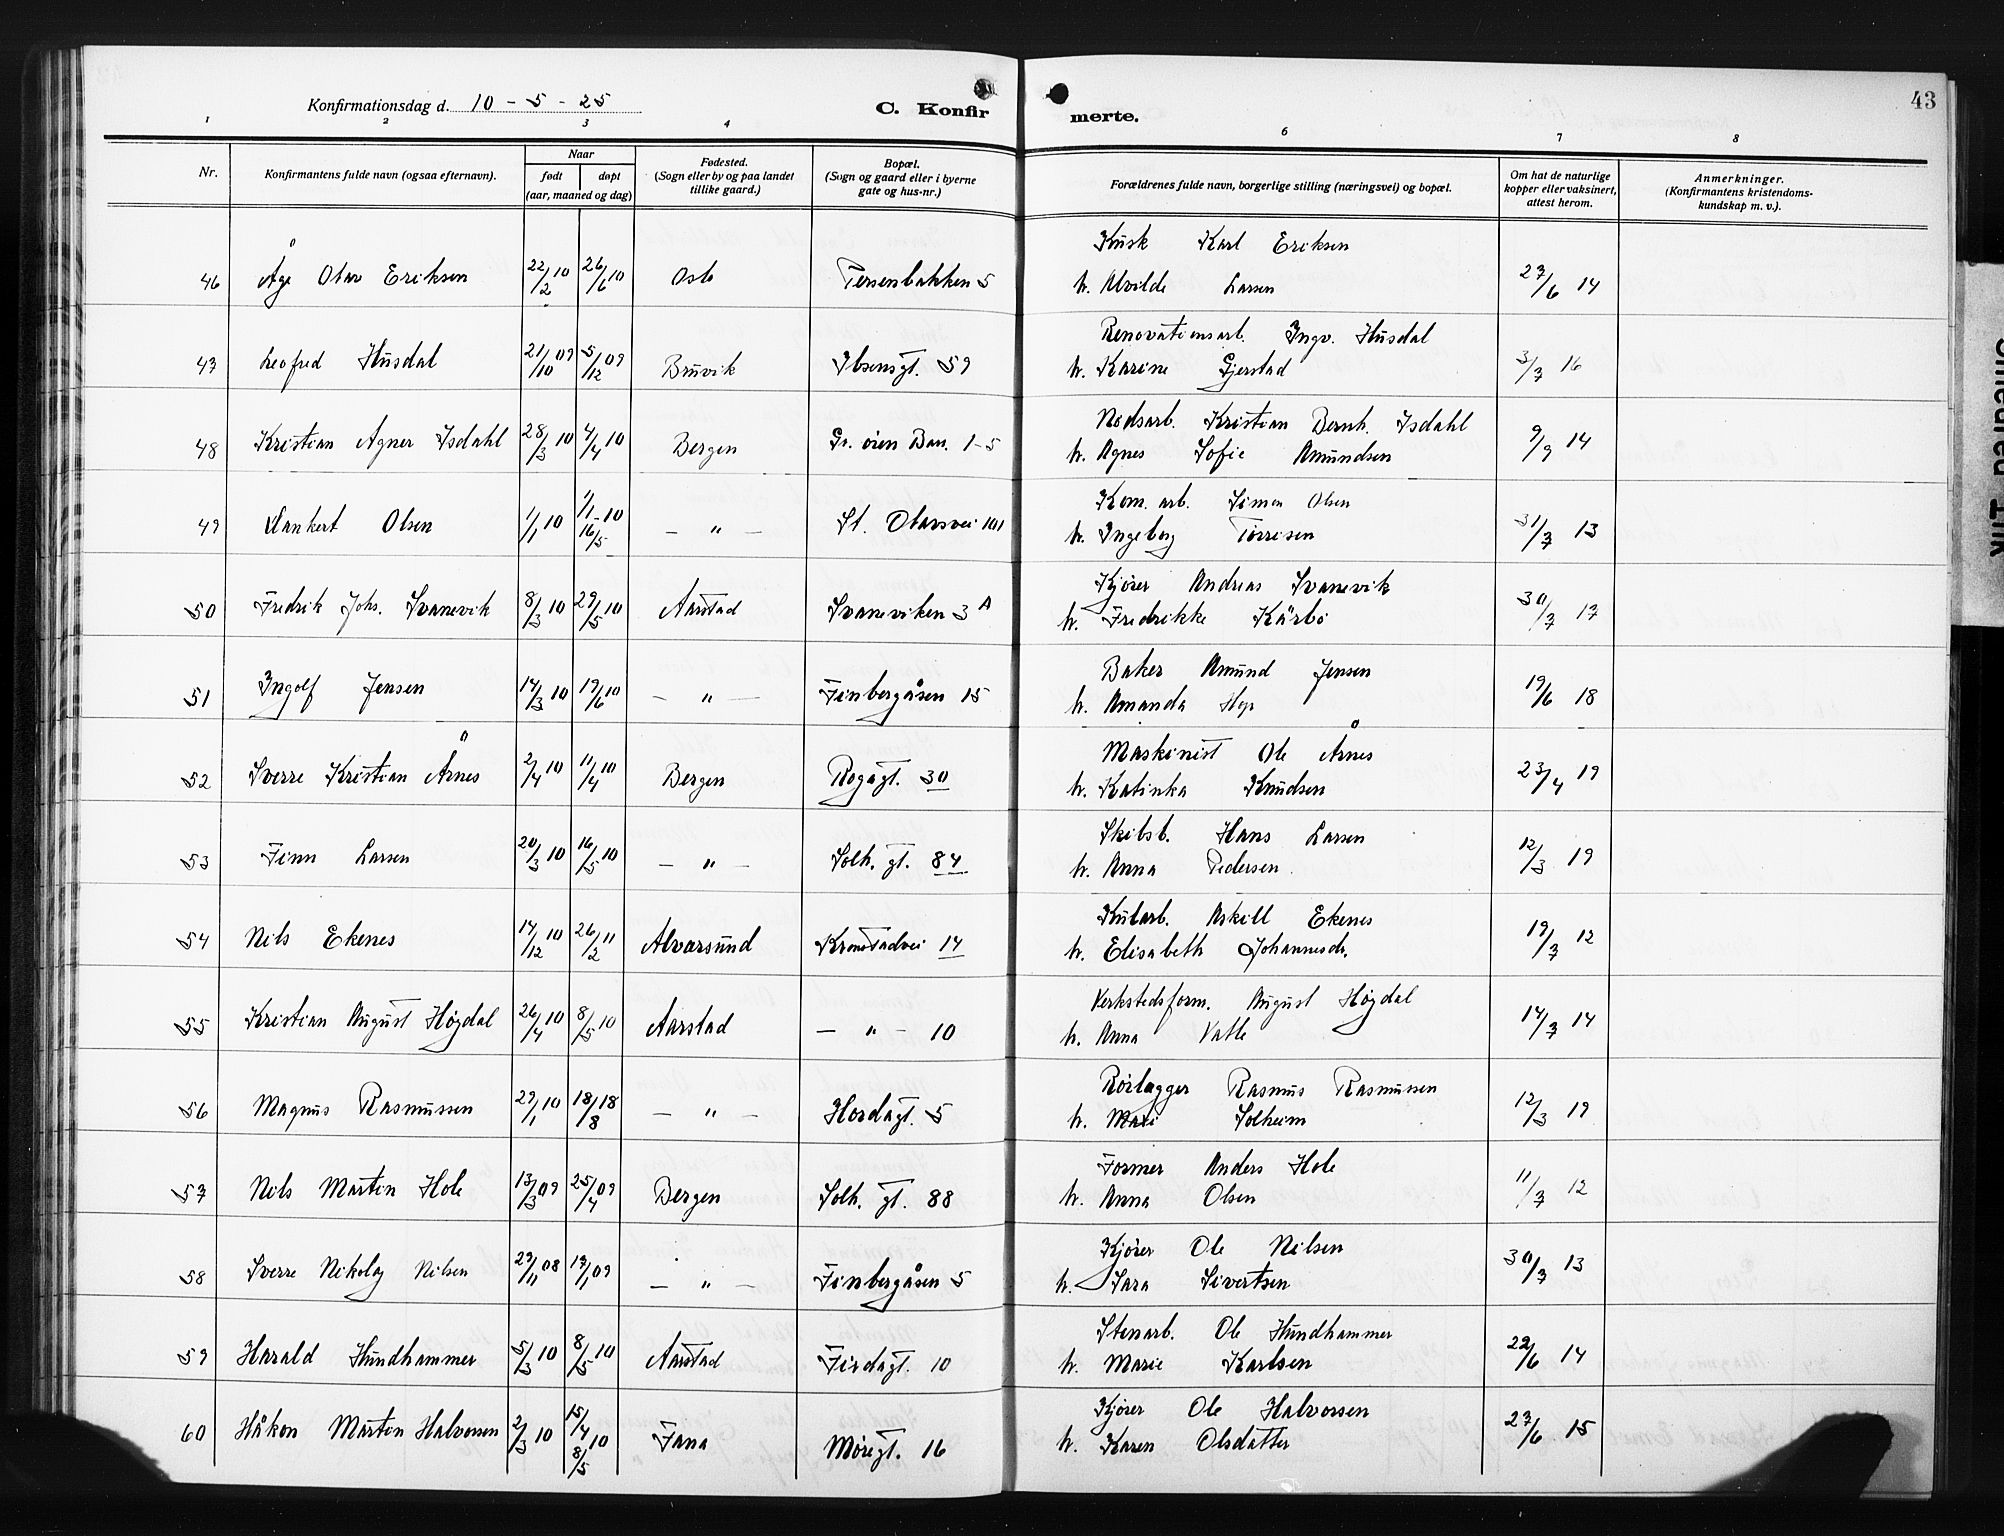 Konfirmationsdag d. 10 - 5 - 25
C. Konfir
merte.
43
1 2 3 4 6 7 8
Nr.
Konfirmantens fulde navn (ogsaa efternavn).
Naar
født døpt
(aar, maaned og dag)
Fødested.
(Sogn eller by og paa landet
tillike gaard.)
Bopæl.
(Sogn og gaard eller i byerne
gate og hus-nr.)
Forældrenes fulde navn, borgerlige stilling (næringsvei) og bopæl.
Om hat de naturlige
kopper eller vaksinert,
attest herom.
Anmerkninger.
(Konfirmantens kristendoms-
kundskap m. v.).
Kusk Karl Eriksen
46 Åge Olav Eriksen 22/2 10 26/6 10 Oslo 5 h. Alvilde Larsen 27/6 14
Renovationsarb. Ingv. Husdal
47 Leofred Husdal 21/10 09 5/12 09 Bruvik Ibsensgt. 59 h. Karine Gjerstad 3/7 16
Nødsarb. Kristian Bernh. Isdahl
48 Kristian Agner Isdahl 28/3 10 4/4 10 Bergen Gr. øien Bar. 1-5 h. Agnes Sofie Amundsen 9/9 14
Kom. arb. Simon Olsen
49 Olsen 1/1 10 1/1-10 16/5 — " — St. Olavsvei 101 h. Ingeborg Torrisen 31/7 13
Kjører Andreas Svanevik
50 Fredrik Johs. Svanevik 8/3 10 29/5 10 Aarstad Svaneviken 3 A h. Fredrikke Kårbø 30/7 17
Baker Amund Jensen
51 Ingolf Jensen 14/3 10 19/6 10 — " — Finbergåsen 15 h. Amanda Hop 19/6 18
Maskinist Ole Årnes
52 Sverre Kristian Årnes 2/4 10 11/4 10 Bergen Rogagt. 30 h. Katinka Knudsen 23/4 19
Skibsb. Hans Larsen
53 Finn Larsen 20/3 10 16/5 10 — " — Solh. gt. 84 h. Anna Pedersen 12/3 19
Kularb. Askill Ekenes
54 Nils Ekenes 14/12 10 26/2 11 Alvarsund Kronstadvei 14 h. Elisabeth Johannesdr. 19/7 12
Verkstedsform. August Høgdal
55 Kristian August Høgdal 26/4 10 8/5 10 Aarstad — " — 10 h. Anna Vatle 14/7 14
Rørlægger Rasmus Rasmussen
56 Magnus Rasmussen 29/1 10 18/8 18 — " — Hordagt. 5 h. Mari Solheim 12/3 19
Former Anders Hole
57 Nils Martin Hole 13/3 09 25/4 09 Bergen Solh. gt. 88 h. Anna Olsen 11/7 12
Kjører Ole Nilsen
58 Sverre Nikolay Nilsen 29/11 08 17/1 09 — " — Finbergåsen 5 h. Sara Sivertsen 30/7 13
Stenarb. Ole Hundhammer
59 Harald Hundhammer 5/3 10 8/5 10 Aarstad Firdagt. 10 h. Marie Karlsen 22/6 14
Kjører Ole Halvorsen
60 Håkon Marton Halvorsen 2/3 10 15/4 8/5 10 Fana Møregt. 16 h. Karen Olsdatter 27/6 15